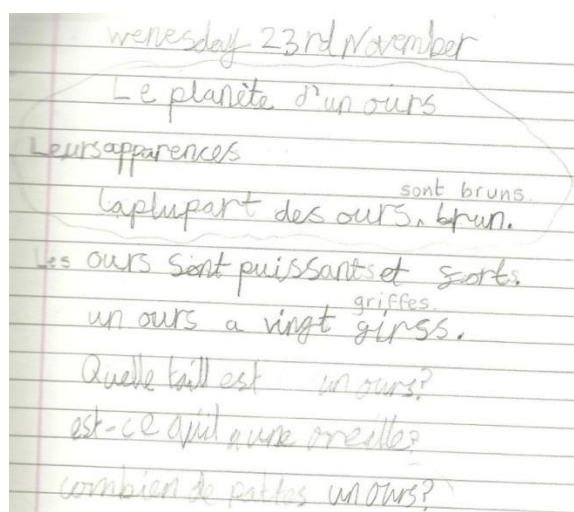 wenesday 23rd November
Le planète d'un ours
Leurs apparences
sont bruns.
la plupart des ours, brun.
Les ours sont puissants et forts.
griffes.
un ours a vingt girss.
Quelle taill est un ours?
est-ce qu'il a une oreille?
combien de pattes un ours?